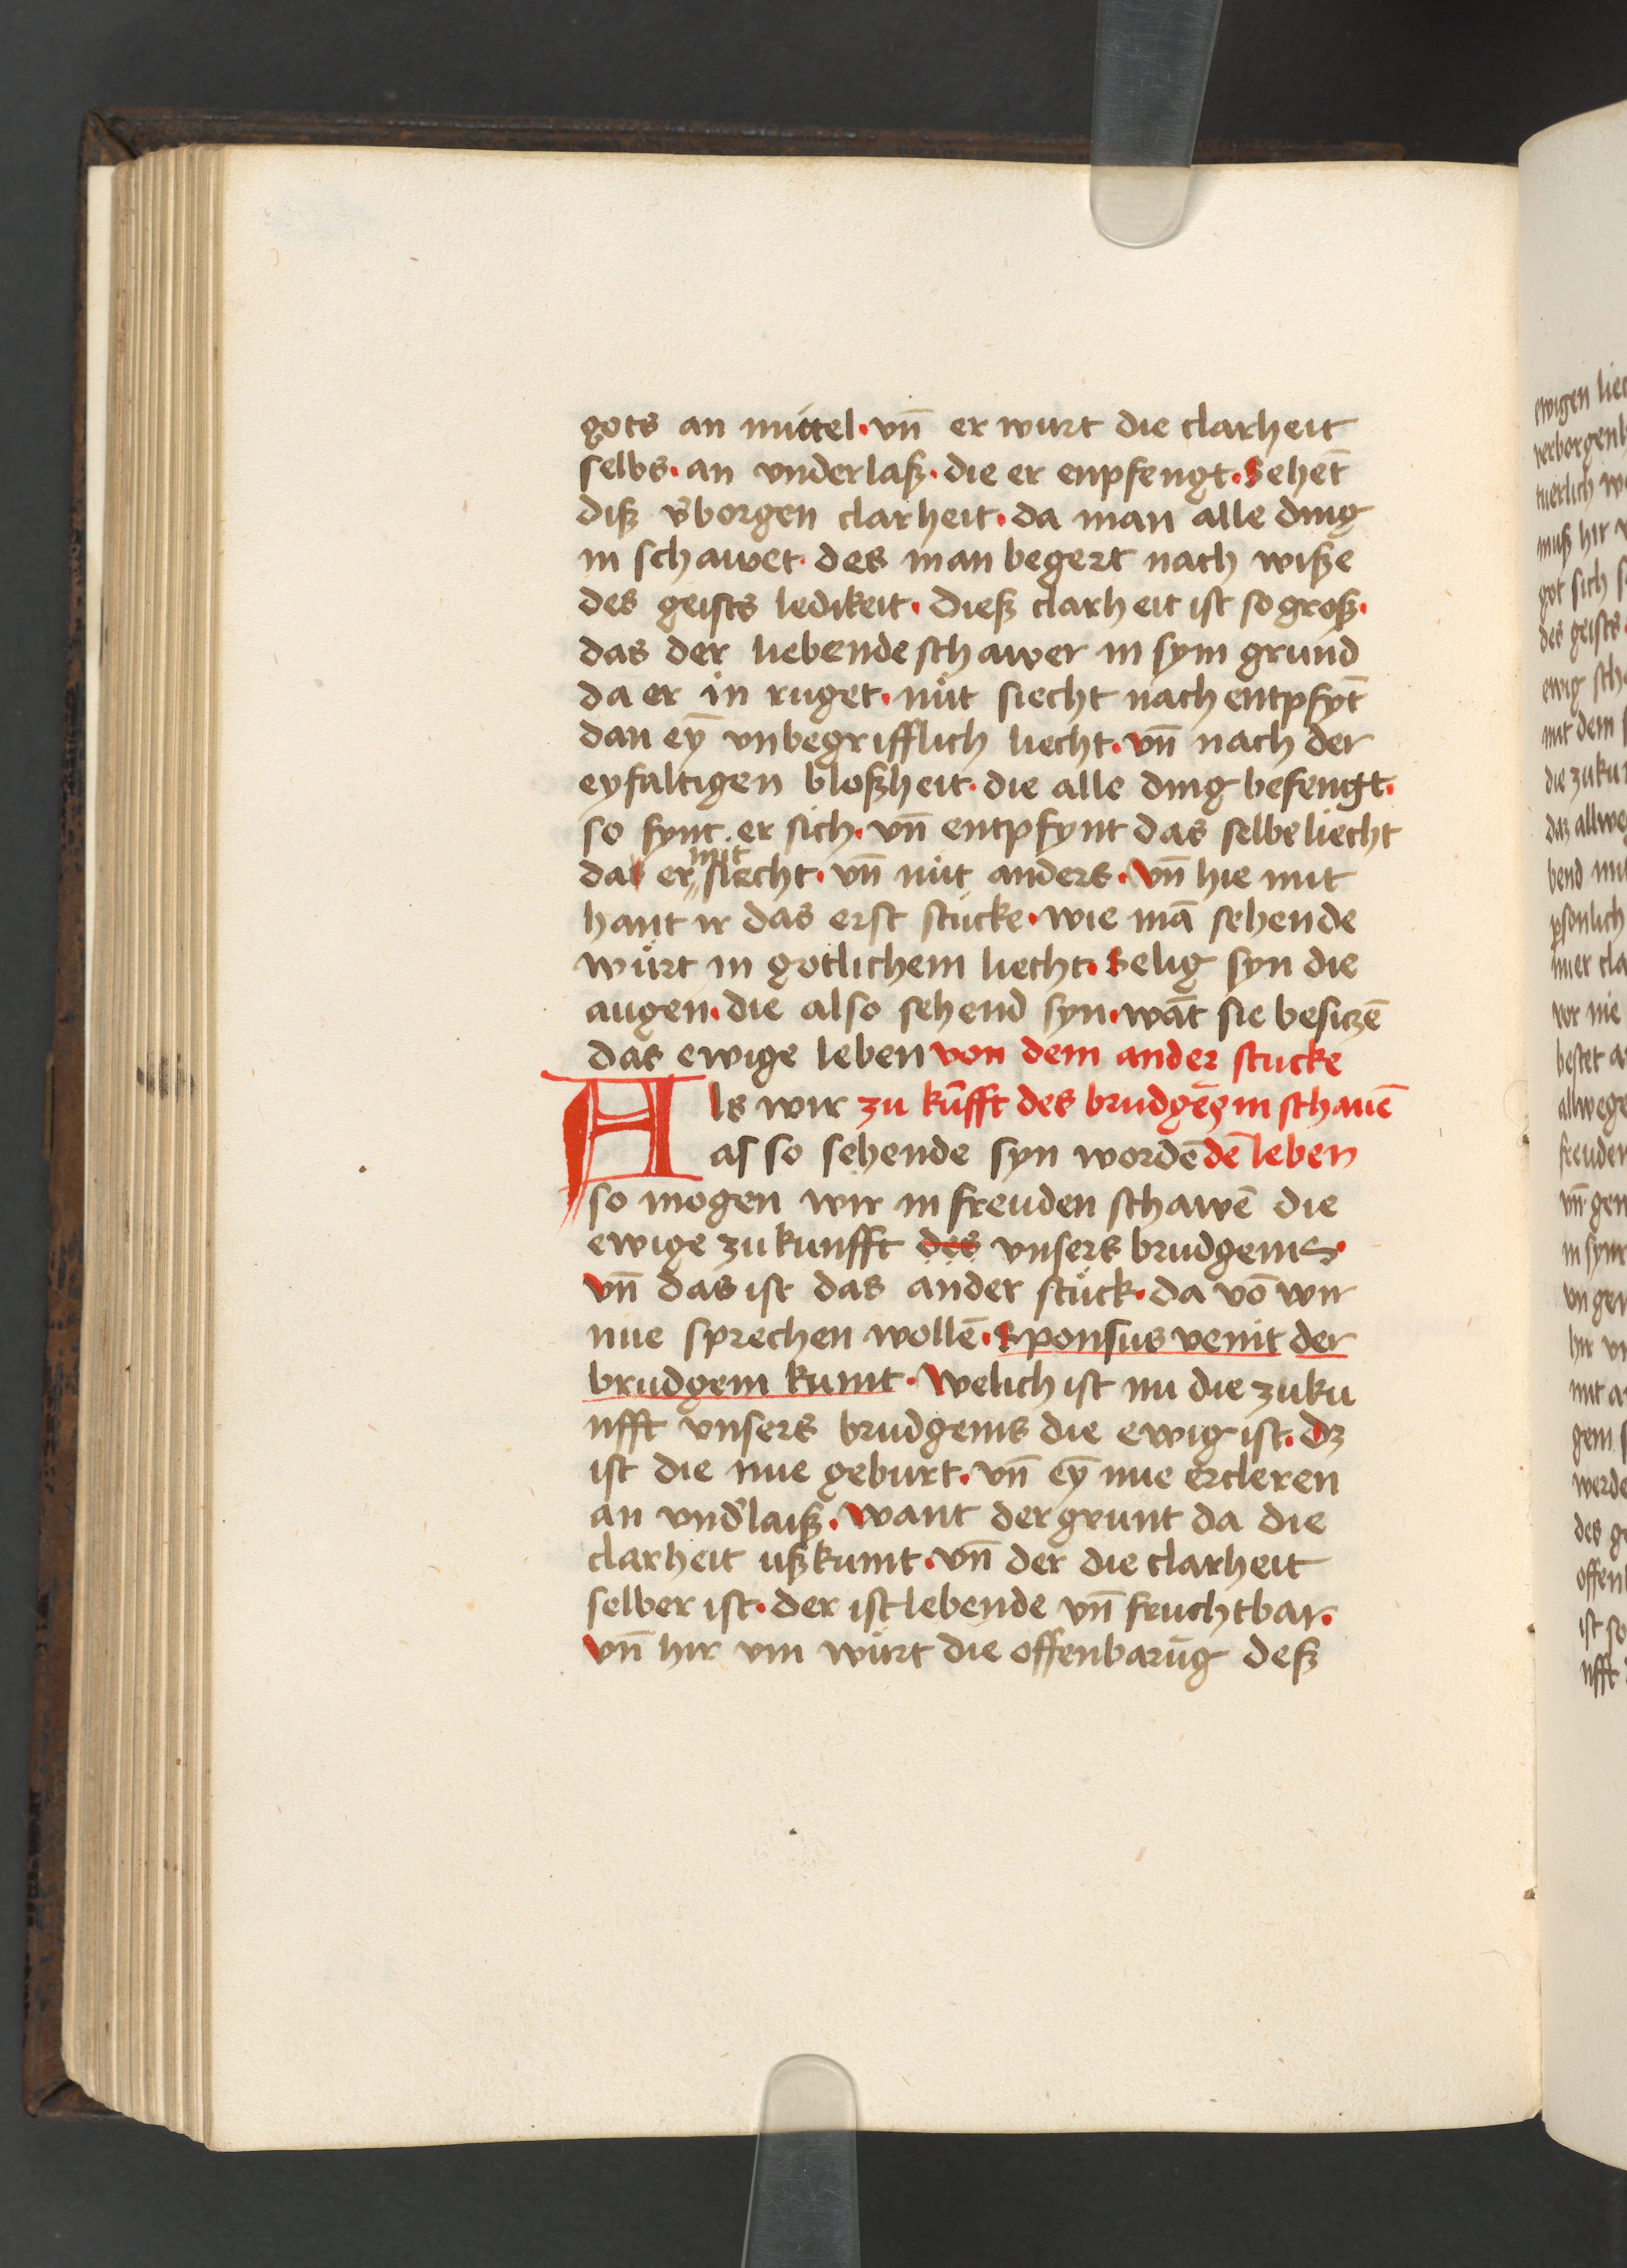 gots an mittel · vn̄ er wurt die clarheit
selbs · an vnderlaß · die er enpfengt · Sehēt
diß v̓borgen clarheit · da man alle ding
in schawet · des man begert nach wiße
des geists ledikeit · dieß clarheit ist so groß ·
das der liebende schawer in sym grund
da er in ruget · nüt siecht nach entpfyt̄
dan eȳ vnbegrifflich liecht · vn̄ nach der
eyfaltigen bloßheit · die alle ding befengt ·
so fynt er sich · vn̄ entpfynt das selbe liecht
mit
das er siecht · vn̄ nüt anders · vn̄ hie mit
hant ir das erst stücke · wie mā sehende
würt in gotlichem liecht · Selig syn die
augen · die also sehend syn · wāt sie besiczē
das ewige leben von dem ander stucke
Als wir zu kūfft des brudgēs in schauē
also sehende syn wordē dē leben
so mogen wir in freuden schawē die
ewige zukunfft des vnsers brudgems ·
vn̄ das ist das ander stück · da vō wir
nue sprechen wollē · Sponsus venit der
brudgem kumt · Welich ist nu die zuku
nfft vnsers brudgems die ewig ist · dz
ist die nue geburt · vn̄ eȳ nue ercleren
an vnd̓laiß · Want der grunt da die
clarheit ußkumt · vn̄ der die clarheit
selber ist · der ist lebende vn̄ fruchtbar ·
vn̄ hir vm würt die offenbarūg deß